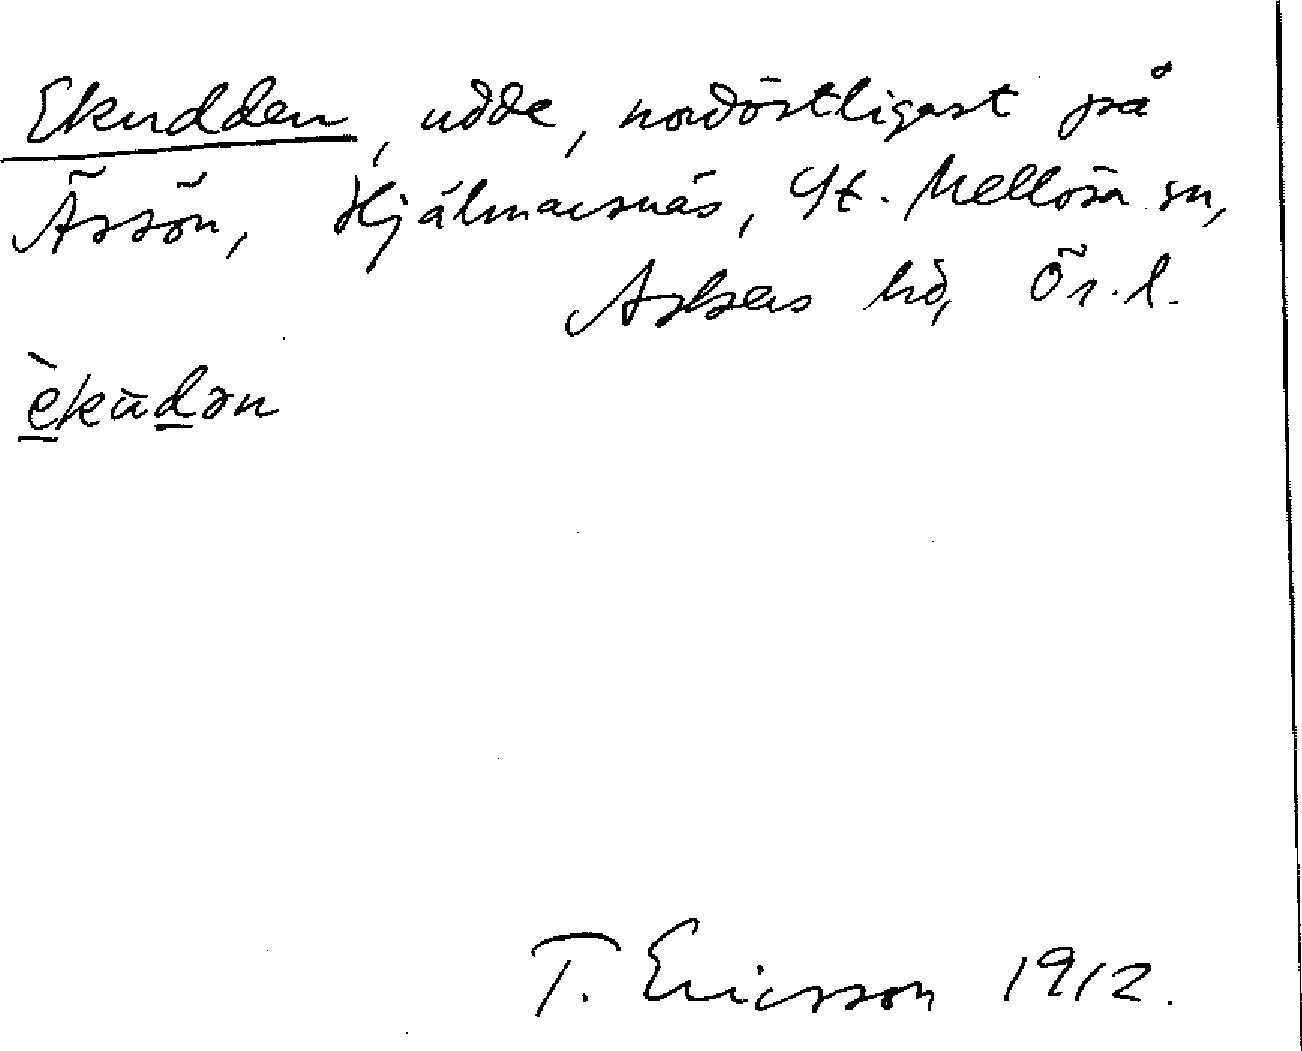 Ekudden, udde, nordöstligast på
Ässön, Hjälmarsnäs, St. Mellösa sn,
Askers hd, Ör. l.
èkūdən
T. Ericsson 1912.